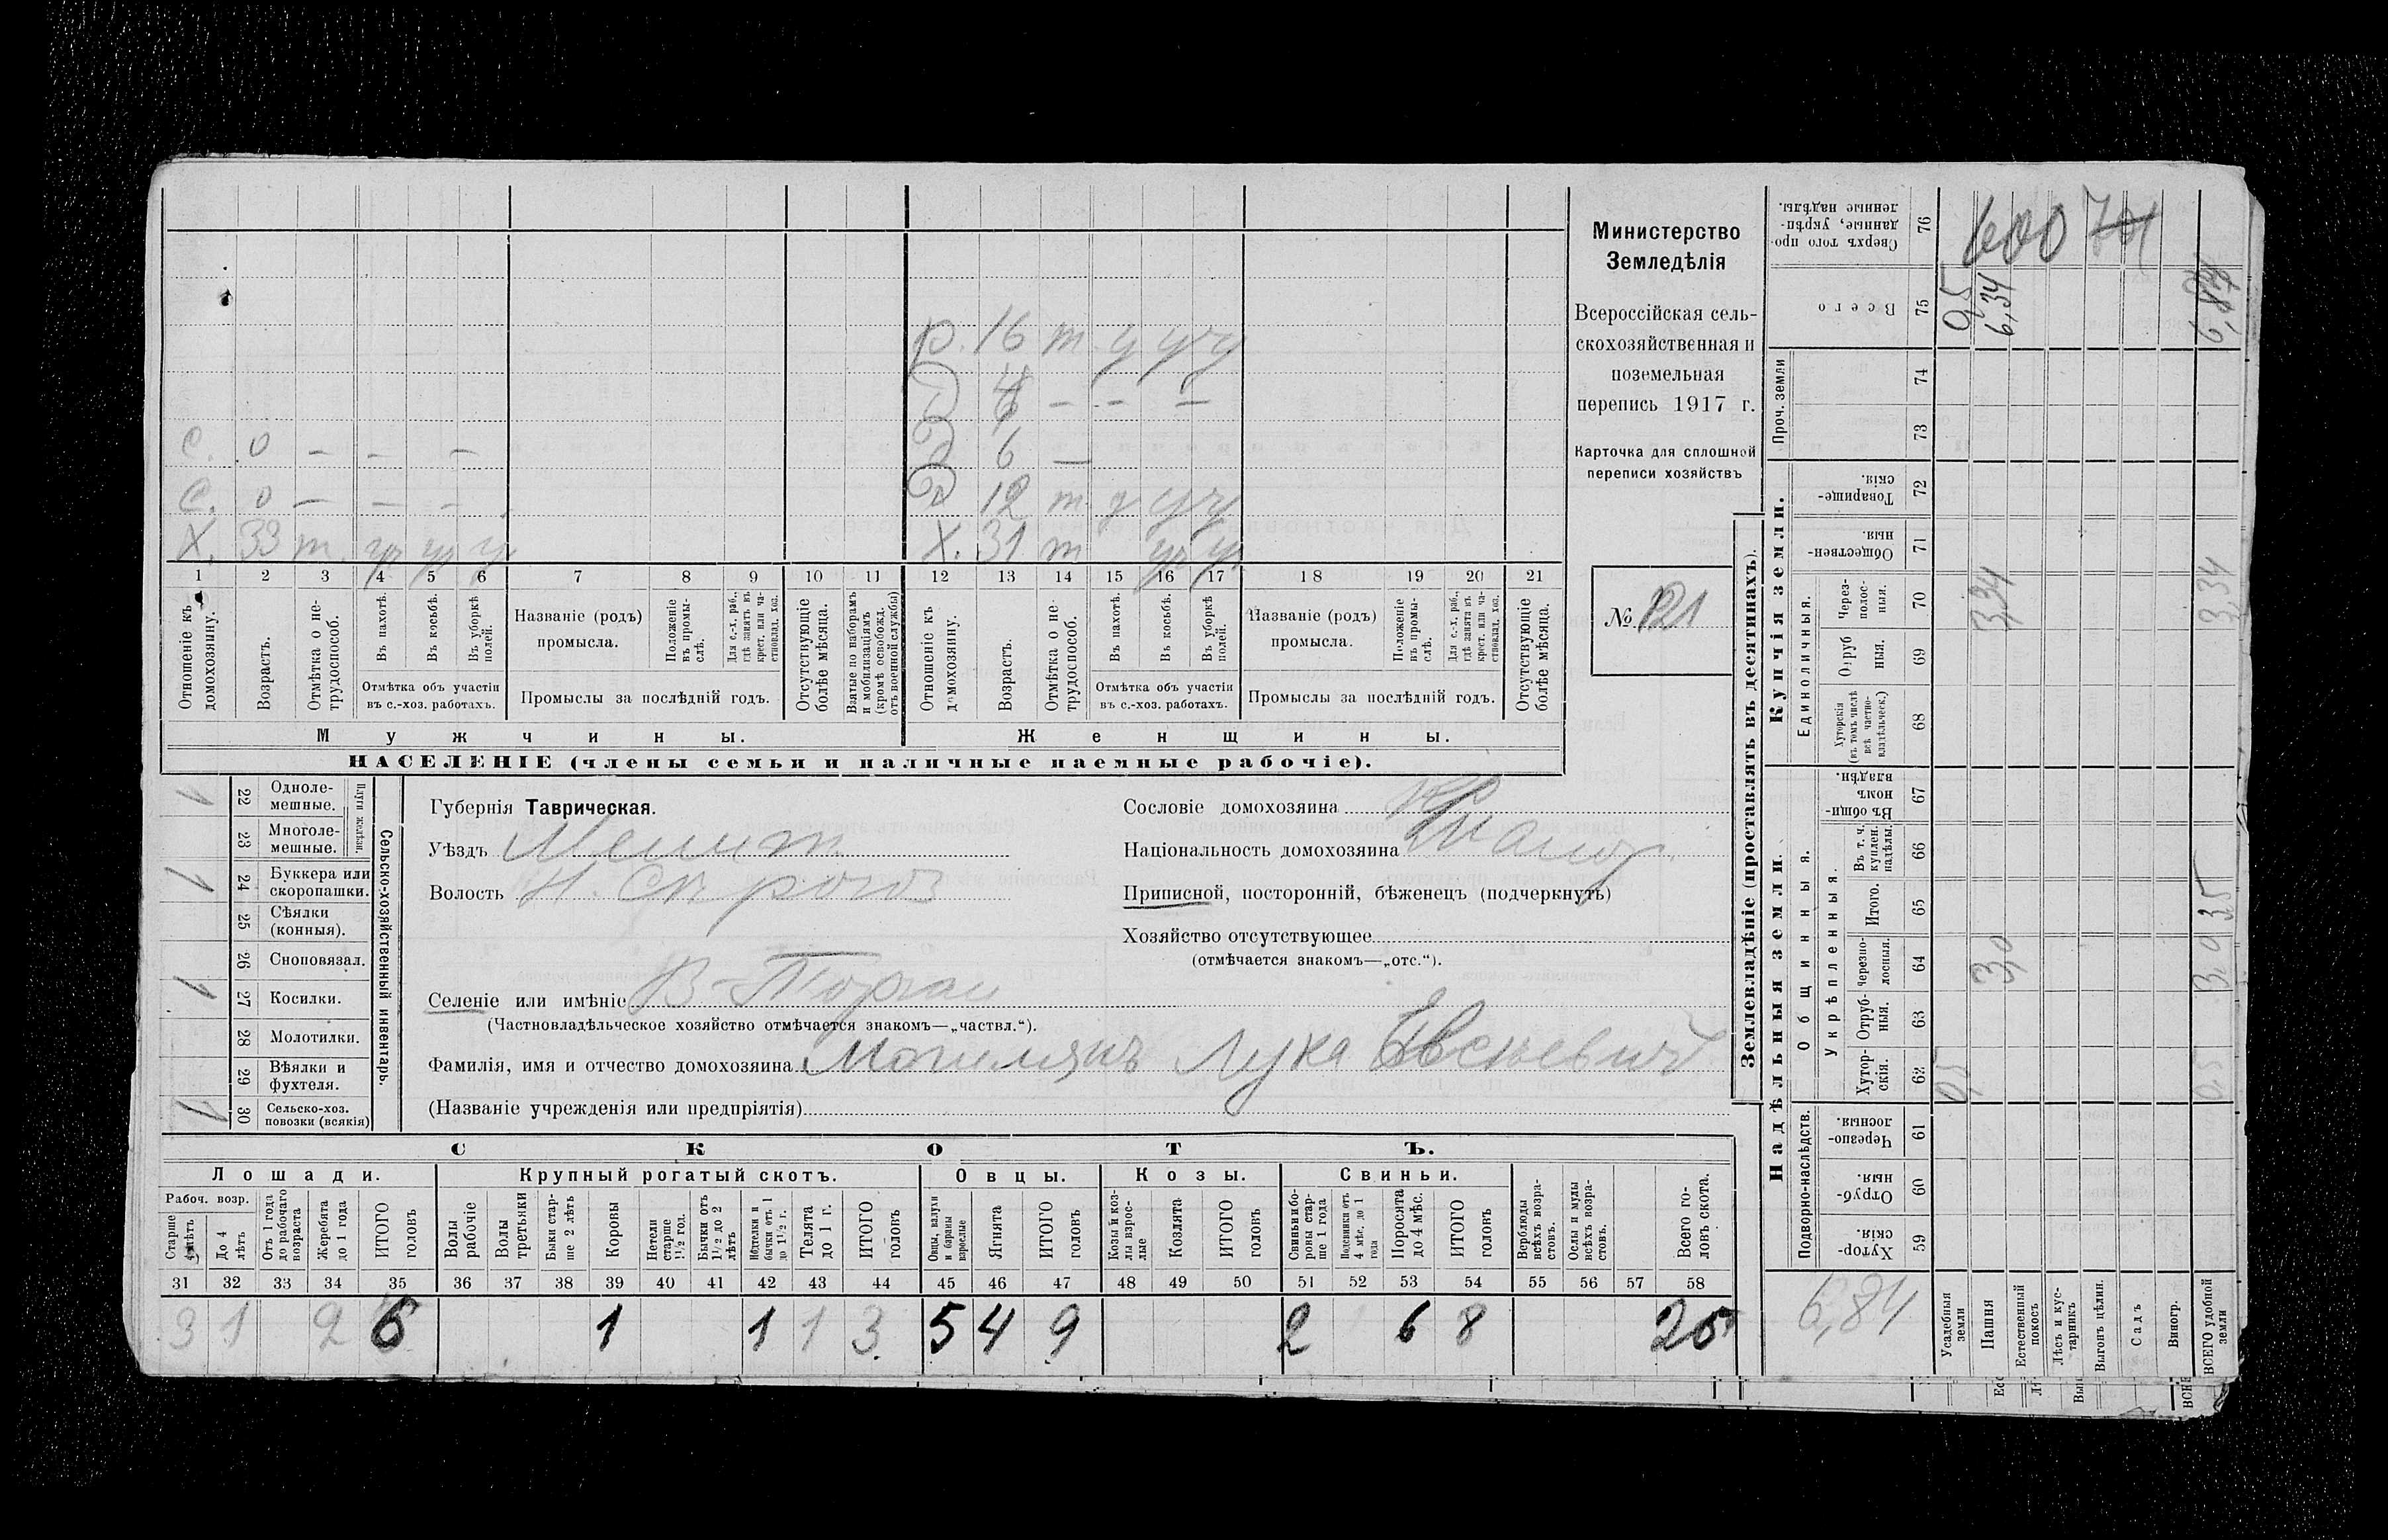 Министерство
Земледѣлія
Всероссійская сель-
скохозяйственная и
поземельная
перепись 1917 г.
Карточка для сплошной
переписи хозяйствъ
№ 121
р. 16 т. у уч
д 4 — — —
с. 0 — — — д 6 —
с. 0 — — — д 12 т. у уч
х. 33 т. уч уч уч х. 31 т уч уч
1 2 3 4 5 6 7 8 9 10 11 12 13 14 15 16 17 18 19 20 21
Отношеніе къ домохозяину.
Возрастъ.
Отмѣтка о не-трудоспособ.
Въ пахотѣ.
Въ косьбѣ.
Въ уборкѣ полей.
Отмѣтка объ участіи въ с.-хоз. работахъ.
Названіе (родъ) промысла.
Положеніе въ промы-слѣ.
Для с.-х. раб., гдѣ занятъ въ крест. или ча-стновлад. хоз.
Промыслы за послѣдній годъ.
Отсутствующіе болѣе мѣсяца.
Взятые по наборамъ и мобилизаціямъ (кромѣ освобожд. отъ военной службы)
Отношеніе къ домохозяину.
Возрастъ.
Отмѣтка о не-трудоспособ.
Въ пахотѣ.
Въ косьбѣ.
Въ уборкѣ полей.
Отмѣтка объ участіи въ с.-хоз. работахъ.
Названіе (родъ) промысла.
Положеніе въ промы-слѣ.
Для с.-х. раб., гдѣ занята въ крест. или ча-стновлад. хоз.
Промыслы за послѣдній годъ.
Отсутствующіе болѣе мѣсяца.
Мужчины. Женщины.
НАСЕЛЕНІЕ (члены семьи и наличные наемные рабочіе).
Сельско-хозяйственный инвентарь.
Плуги желѣзн.
1 22 Одноле-мешные.
23 Многоле-мешные.
1 24 Буккера или скоропашки.
25 Сѣялки (конныя).
26 Сноповязал.
1 27 Косилки.
28 Молотилки.
29 Вѣялки и фухтеля.
1 30 Сельско-хоз. повозки (всякія)
Губернія Таврическая.
Уѣздъ Мелит.
Волость Н. Сѣрогоз
Селеніе или имѣніе В-Торгаи
(Частновладѣльческое хозяйство отмѣчается знакомъ—„частвл.“).
Фамилія, имя и отчество домохозяина Могилянъ Лука Евсѣевичъ
(Названіе учрежденія или предпріятія)
Сословіе домохозяина кр
Національность домохозяина Малор.
Приписной, посторонній, бѣженецъ (подчеркнуть)
Хозяйство отсутствующее
(отмѣчается знакомъ—„отс.“).
СКОТЪ.
Лошади. Крупный рогатый скотъ. Овцы. Козы. Свиньи.
Рабоч. возр.
Старше 4 лѣтъ
До 4 лѣтъ
Отъ 1 года до рабочаго возраста
Жеребята до 1 года
ИТОГО головъ
Волы рабочіе
Волы третьяки
Быки стар-ше 2 лѣтъ
Коровы
Нетели старше 1½ год.
Бычки отъ 1½ до 2 лѣтъ
Нетелки и бычки отъ 1 до 1½ г.
Телята до 1 г.
ИТОГО головъ
Овцы, валухи и бараны взрослые
Ягнята
ИТОГО головъ
Козы и коз-лы взрос-лые
Козлята
ИТОГО головъ
Свиньи и бо-ровы стар-ше 1 года
Подсвинки отъ 4 мѣс. до 1 года
Поросята до 4 мѣс.
ИТОГО головъ
Верблюды всѣхъ возра-стовъ.
Ослы и мулы всѣхъ возра-стовъ.
Всего го-ловъ скота.
31 32 33 34 35 36 37 38 39 40 41 42 43 44 45 46 47 48 49 50 51 52 53 54 55 56 57 58
3 1 2 6 1 1 1 3 5 4 9 2 6 8
Землевладѣніе (проставлять въ десятинахъ).
Надѣльныя земли. Купчія земли.
Проч. земли
Подворно-наслѣдств.
Общинныя.
Укрѣпленныя.
Единоличныя.
Хутор-скія. 59
Отруб-ныя. 60
Черезпо-лосныя. 61
Хутор-скія. 62
Отруб-ныя. 63
черезпо-лосныя. 64
Итого. 65
Въ т. ч. куплен. надѣлы. 66
Въ общи-номъ владѣн. 67
Хуторскія (въ томъ числѣ всѣ частно-владѣльческ.) 68
Отруб ныя. 69
Через-полос-ныя. 70
Обществен-ныя. 71
Товарище-скія. 72
73
74
Всего 75
Сверхъ того про-данные, укрѣп-ленные надѣлы. 76
Усадебныя земли 0,5 0,5
Пашня 3,0 3,34 6,34
Естественный покосъ
Лѣсъ и кус-тарникъ
Выгонъ цѣлин.
Садъ
Виногр.
ВСЕГО удобной земли 0,5 3,0 3,5 3,34 6,84
6,84
600